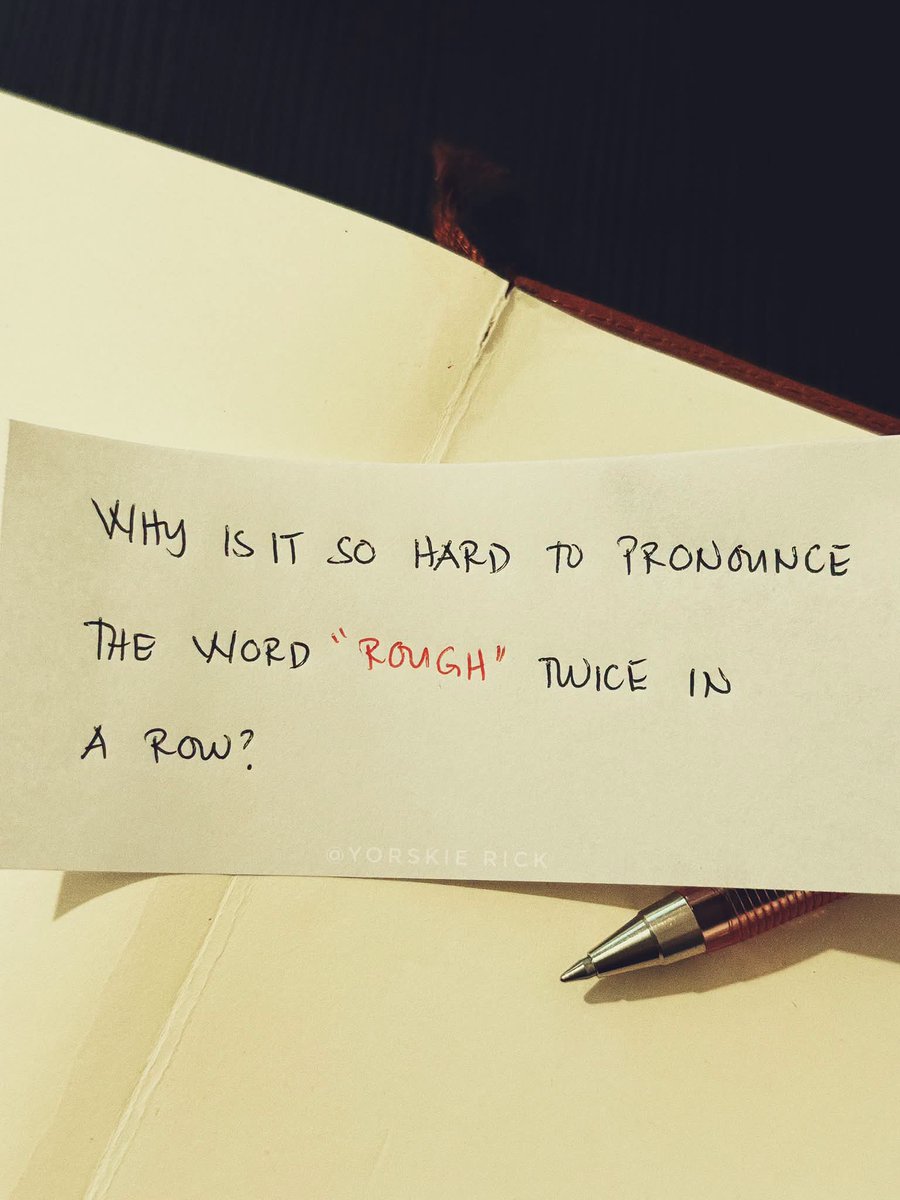 WHY IS IT SO HARD TO PRONOUNCE
THE WORD "ROUGH" TWICE IN
A ROW?
@YORSKIE RICK